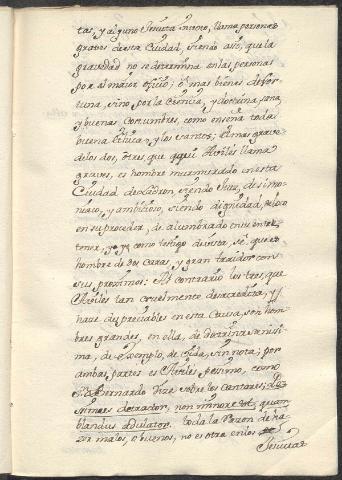 tas, y alguno Jesuita intento, llama personas
graves de esta Ciudad, siendo assi, que la
gravedad no se determina en las personas
por el maior oficio; ô mas bienes de for-
tuna, sino por la Ciencia, y doctrina sana
y buenas costumbres, como enseña toda
buena Ethica y los santos; el mas grave
de los dos, ô tres que aqui Aviles llama
graves, es hombre murmurado en esta
Ciudad de Ladron siendo Juez, de simo-
niaco, y ambicioso, siendo dignidad,
en su proceder, de alumbrado en su enten-
tener, yo ya como testigo de vista, sé que es
hombre de dos caras, y gran traidor con
sus proximos: Al contrario los tres, que
Aviles tan cruelmente desacredita, y
haze despreciables en esta Causa, son hom-
bres grandes, en ella, de dotrina sanisi-
ma, de exemplo, de vida, sin nota; por
ambas partes es Aviles pessimo, como
S. Bernardo dize sobre los Cantares;
detractor, non minore est, quam
blandus adulator. toda la razon de ha-
zer malos, o buenos, no es otra en los
Jesuitas